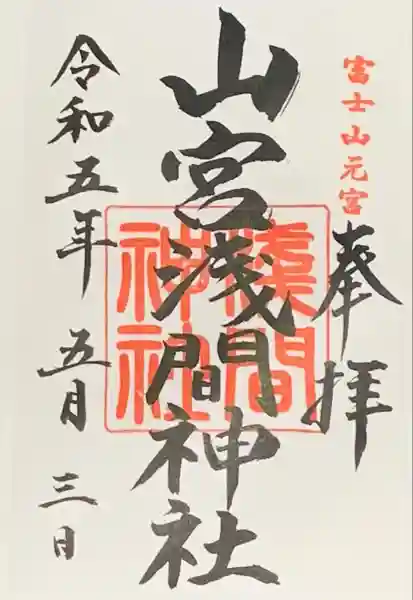 富士山元宮
奉拝
山宮浅間神社
淺間
神社
令和五年 五月 三日